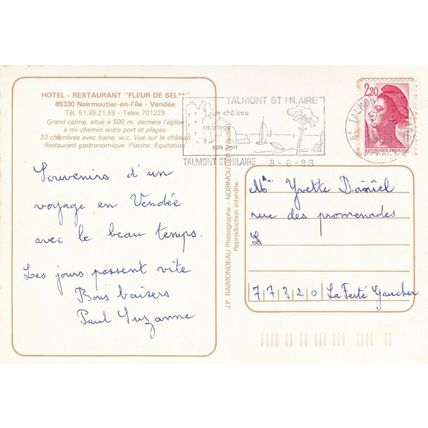 HOTEL - RESTAURANT "FLEUR DE SEL**"
85330 Noirmoutier-en-l'île - Vendée
Tél. 51.39.21.59 - Telex 701229
Grand calme, situé à 500 m. derrière l'église
à mi-chemin entre port et plages.
23 chambres avec bains, w-c. Vue sur le château
Restaurant gastronomique. Piscine. Equitation
Souvenirs d'un
voyage en Vendée
avec le beau temps.
Les jours passent vite
Bons baisers
Paul Suzanne
J.P. RAIMONDEAU Photographe - NOIRMOUTIER (Vendée)
Reproduction interdite
TALMONT ST HILAIRE
son château
sa plage
son port
TALMONT ST HILAIRE
8-6-88
2,20
Yvette Daniel
rue des promenades
77320 La Ferté Gaucher